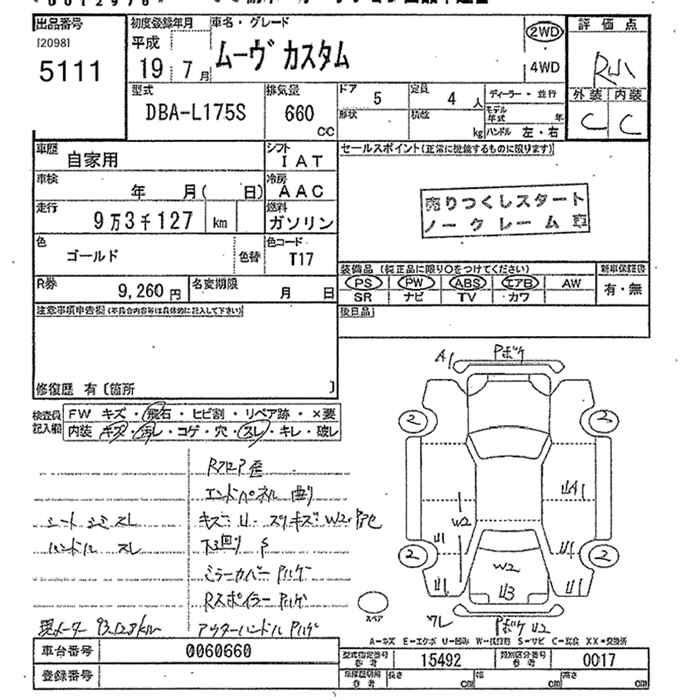 出品番号 初度登録年月 車名・グレード 評価点
[2098] 平成 2WD
5111 19年 7月 ムーヴ カスタム 4WD
型式 排気量 ドア 定員 ディーラー・並行 外装 内装
DBA-L175S 660 CC 5 4人 モデル年式 年 C C
形状 積載 kg ハンドル 左・右
車歴 自家用 シフト IAT セールスポイント(正常に機能するものに限ります)
車検 年 月( 日) 冷房 AAC
売りつくしスタート
ノークレーム
走行 9万3千127 km 燃料 ガソリン
色 ゴールド 色替 色コード T17
装備品(純正品に限り○をつけてください) 新車保証書
R券 9,260円 名変期限 月 日 PS PW ABS エアB AW 有・無
SR ナビ TV カワ
注意事項申告欄(不具合内容等は具体的に記入して下さい) 後日品
修復歴 有〔箇所 〕
A1 Pボケ
検査員記入欄 FW キズ・飛石・ヒビ割・リペア跡・×要
内装 キズ・汚レ・コゲ・穴・スレ・キレ・破レ
2 2
Rフロア 歪
エンドパネル 曲り
シート シミ スレ キズ U スリキズ W2
ハンドル スレ 下回り S
ミラーカバー
Rスポイラー
現メーター アウターハンドル
UA1
W2
U1 U1
2 2
W2
U1 U3 U1
スペア
ワレ Pボケ U2
A-キズ E-エクボ U-凹み W-板金跡 S-サビ C-腐食 XX-交換済
車台番号 0060660 型式指定番号 参考 15492 類別区分番号 参考 0017
登録番号 参考 長さ cm 幅 cm 高さ cm